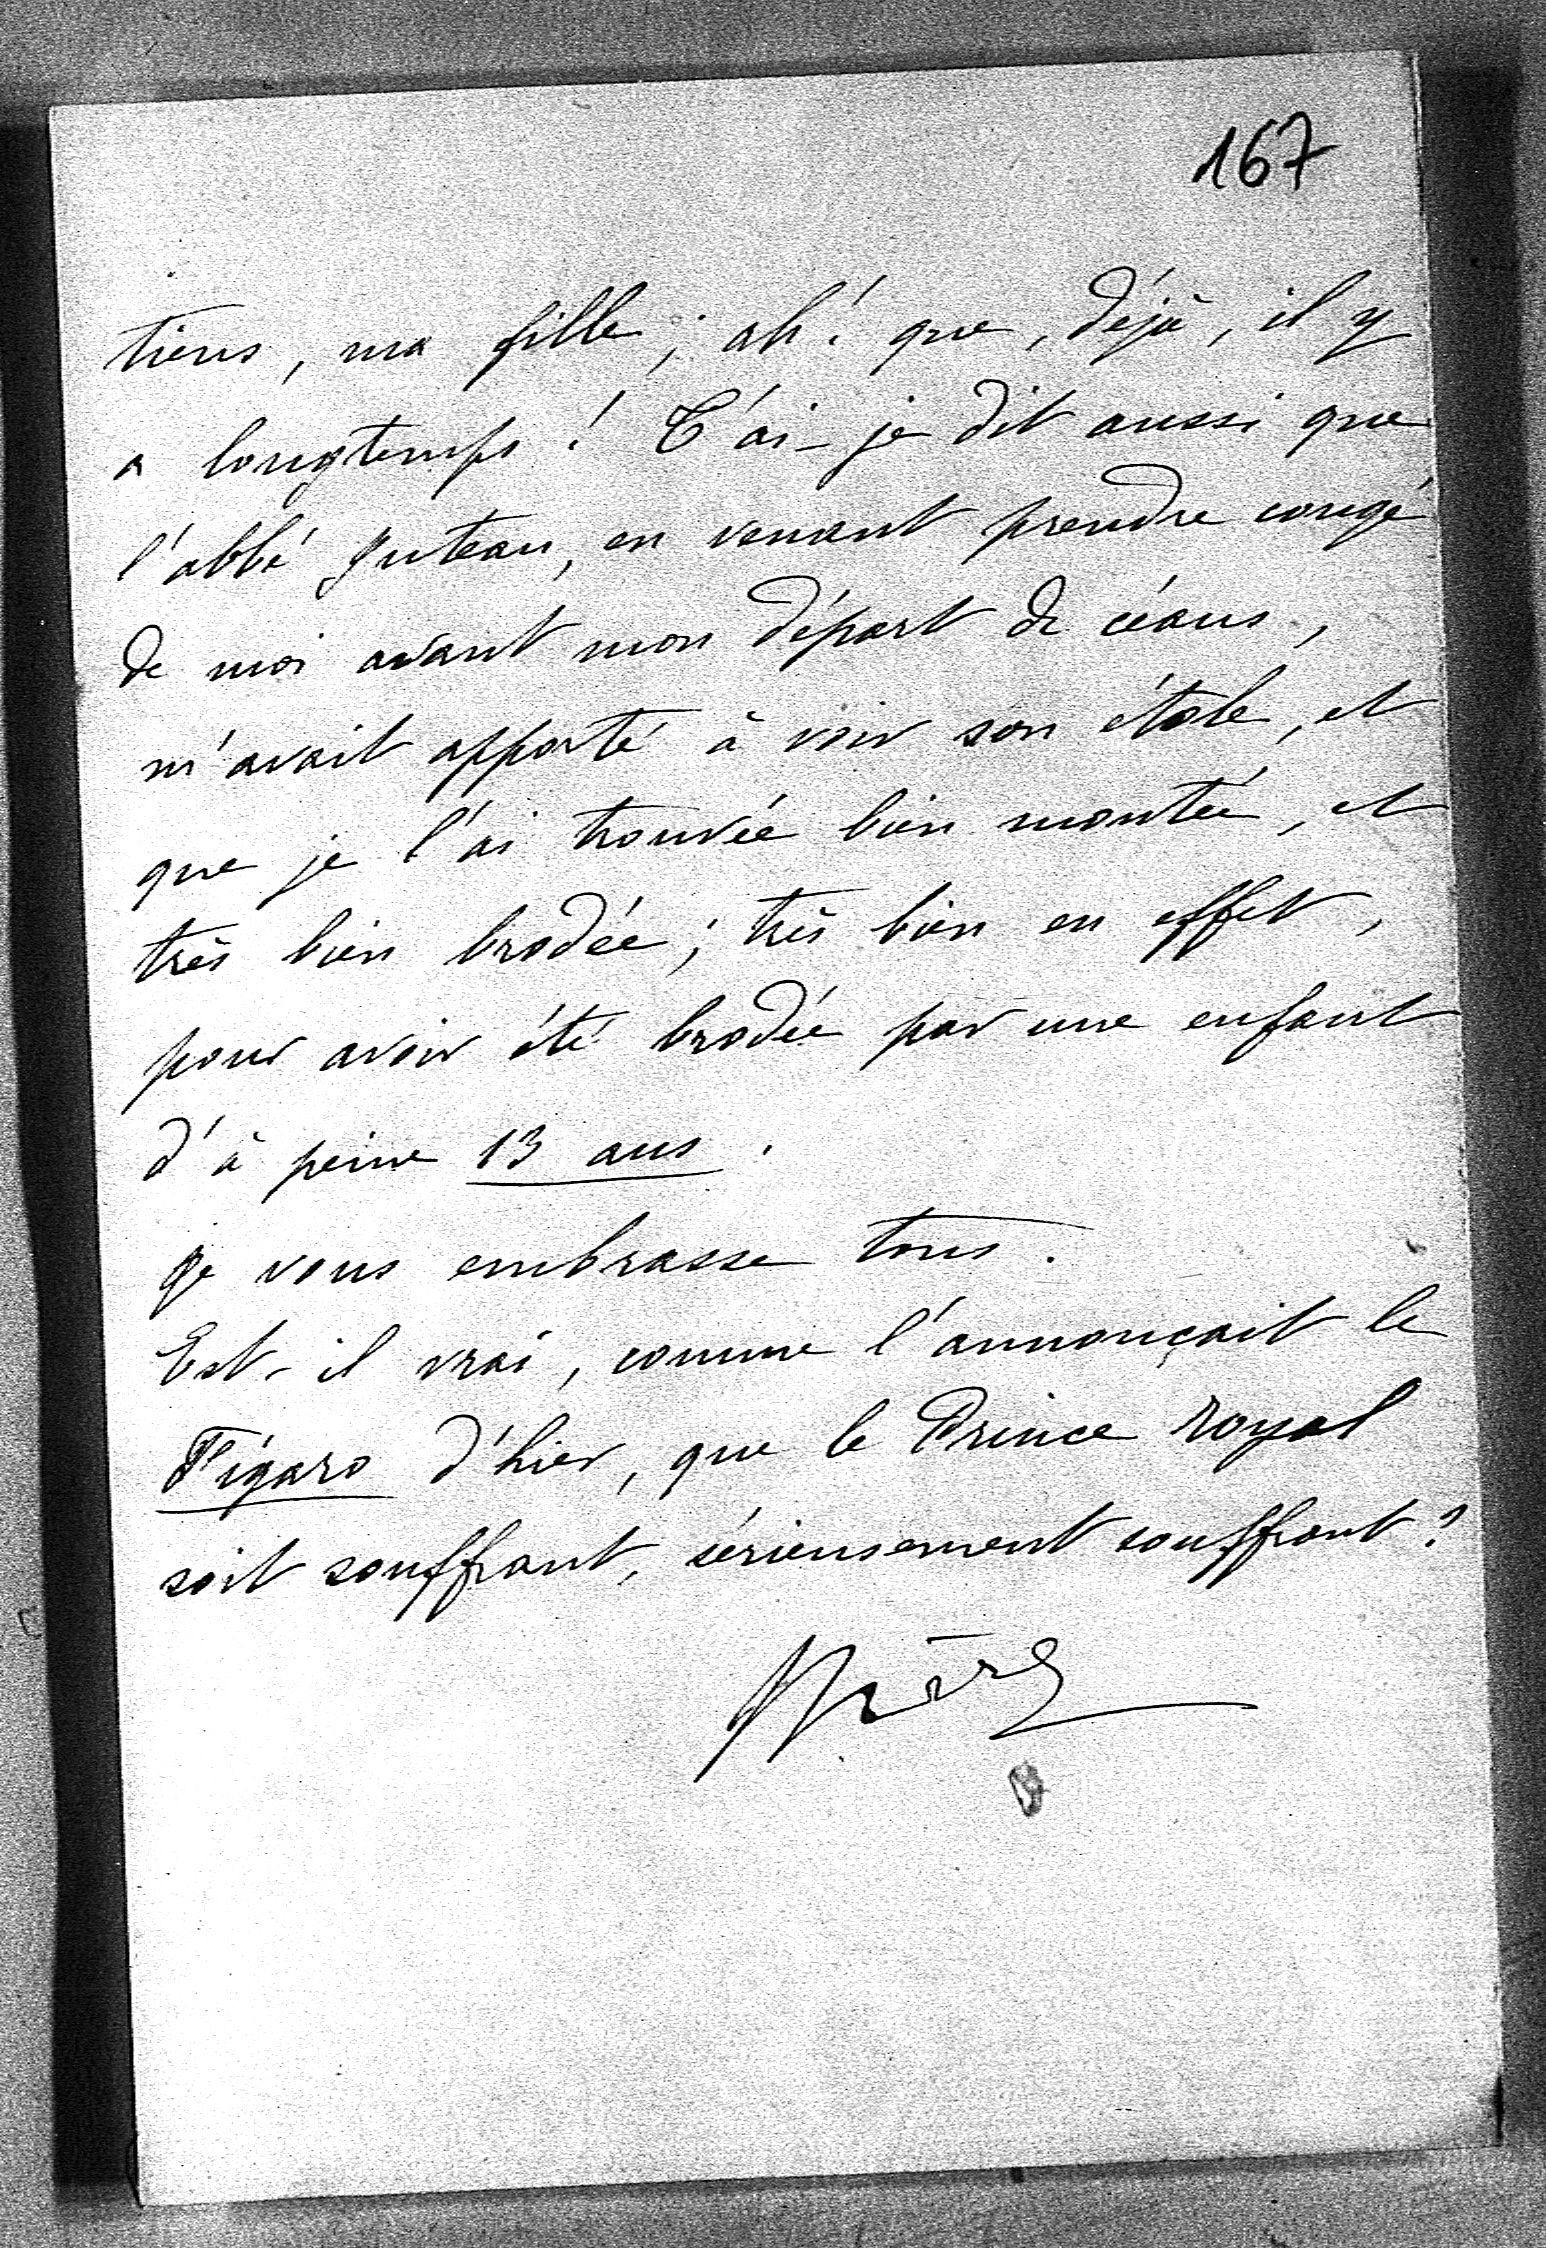 167
tiens, ma fille ; ah ! que, déjà, il y
a longtemps ! T'ai-je dit aussi que
l'abbé Juteau, en venant prendre congé
de moi avant mon départ de céans,
m'avait apporté à voir son étole, et
que je l'ai trouvée bien montée, et
très bien brodée ; très bien en effet,
pour avoir été brodée par une enfant
d'à peine 13 ans.
Je vous embrasse tous.
Est-il vrai, comme l'annonçait le
Figaro d'hier, que le Prince royal
soit souffrant, sérieusement souffrant ?
Mère